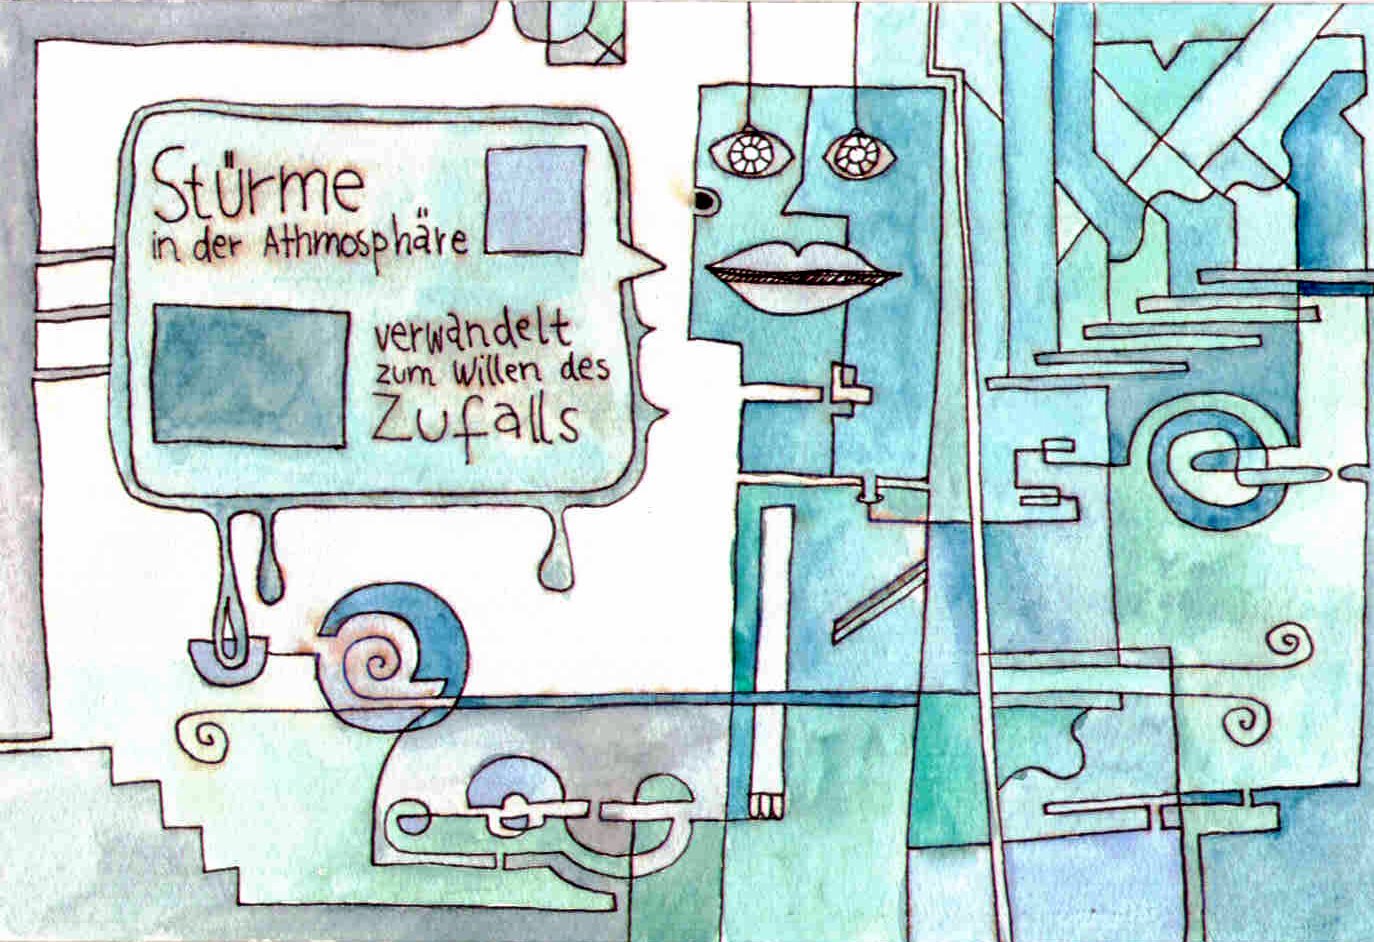 Stürme
in der Athmosphäre
verwandelt
zum Willen des
Zufalls